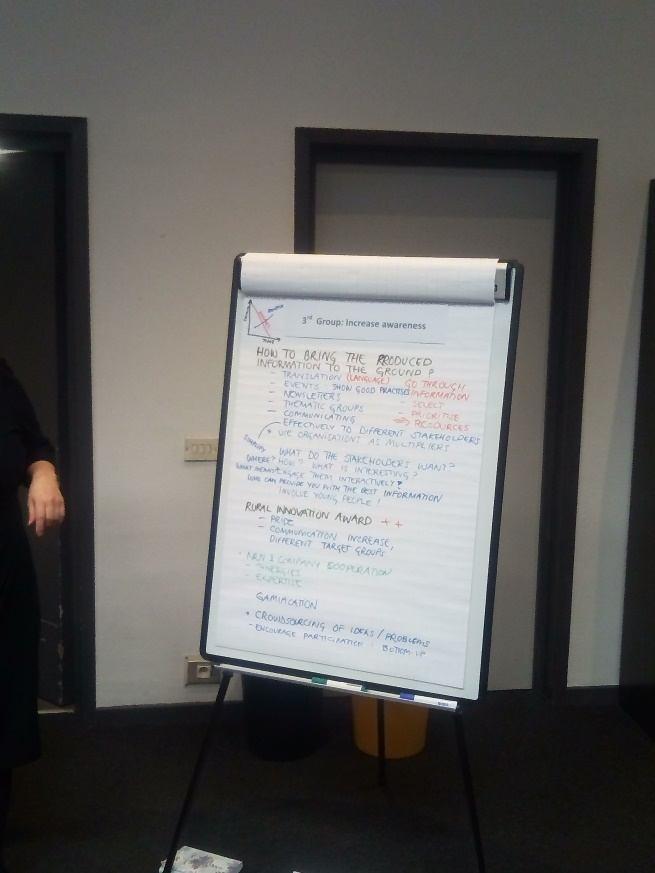 3rd Group: Increase awareness
HOW TO BRING THE PRODUCED
INFORMATION TO THE GROUND?
- TRANSLATION (LANGUAGE)
- EVENTS - SHOW GOOD PRACTISES
- NEWSLETTERS
- THEMATIC GROUPS
- COMMUNICATING
GO THROUGH
INFORMATION
- SELECT
- PRIORITISE
RESOURCES
EFFECTIVELY TO DIFFERENT STAKEHOLDERS
USE ORGANISATIONS AS MULTIPLIERS
WHAT DO THE STAKEHOLDERS WANT?
WHERE? HOW? WHAT IS INTERESTING?
WHAT MEANS? ENGAGE THEM INTERACTIVELY?
WHO CAN PROVIDE YOU WITH THE BEST INFORMATION
INVOLVE YOUNG PEOPLE!
RURAL INNOVATION AWARD ++
- PRIDE
- COMMUNICATION INCREASE,
DIFFERENT TARGET GROUPS
COMPANY COOPERATION
- SYNERGIES
- EXPERTISE
GAMIFICATION
• CROWDSOURCING OF IDEAS / PROBLEMS
- ENCOURAGE PARTICIPATION BOTTOM-UP